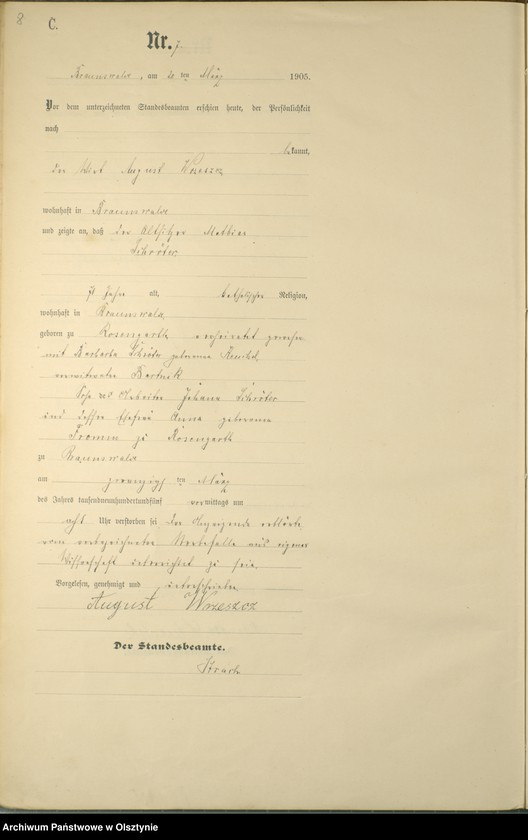 8
C.
Nr. 7.
Braunswalde, am 20 ten März 1905.
Vor dem unterzeichneten Standesbeamten erschien heute, der Persönlichkeit
nach
bekannt,
der Wirt August Wrzeszcz
wohnhaft in Braunswalde
und zeigte an, daß der Altsitzer Mathias
Schröter
71 Jahr alt, katholischer Religion,
wohnhaft in Braunswalde
geboren zu Rosengarth verheiratet gewesen
mit Barbara Schröter geborene
verwitwete
Sohn des Arbeiter Johann Schröter
und dessen Ehefrau Anna geborene
Fromm zu Rosengarth
zu Braunswalde
am zwanzigsten März
des Jahres tausendneunhundertundfünf vormittags um
acht Uhr verstorben sei der Anzeigende erklärte,
vom vorbezeichneten Sterbefalle aus eigener
Wissenschaft unterrichtet zu sein.
Vorgelesen, genehmigt und unterschrieben
August Wrzeszcz
Der Standesbeamte.
Archiwum Państwowe w Olsztynie